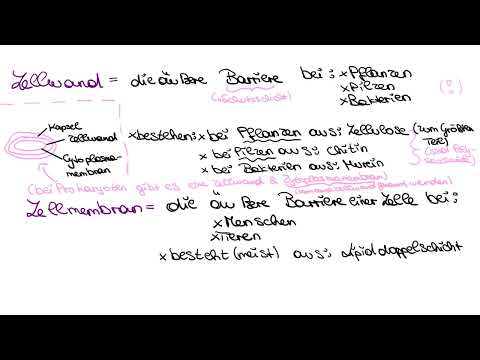 Zellwand = die äußere Barriere bei: x Pflanzen
(Schutzschicht) x Pilzen
x Bakterien
Kapsel
Zellwand
Cytoplasma-
membran
x bestehen: x bei Pflanzen aus: Zellulose (zum Größten
Teil)
x bei Pilzen aus: Chitin
x bei Bakterien aus: Murein
(bei Prokaryoten gibt es eine Zellwand & Cytoplasmamembran)
(kann auch Zellwand genannt werden)
Zellmembran = die äußere Barriere einer Zelle bei:
x Menschen
x Tieren
x besteht (meist) aus: Lipiddoppelschicht